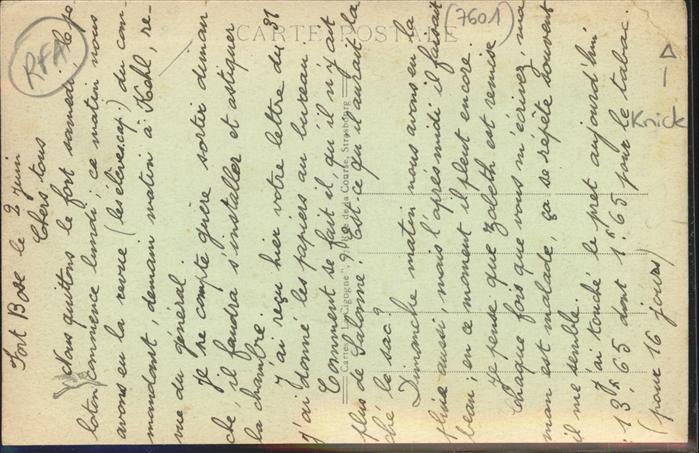 Fort Bose le 2 juin
Chers tous
Nous quittons le fort samedi. Le pe
loton commence lundi ; ce matin nous
avons eu la revue (les élèves cap.) du com-
mandant, demain matin à Kehl, re-
vue du général.
Je ne compte guère sortir diman
che, il faudra s'installer et astiquer
la chambre.
J'ai reçu hier votre lettre du 31
j'ai donné les papiers au bureau.
Comment se fait il, qu'il n'y ait
plus de Salonné ? Est-ce qu'il aurait lâ
ché le sac ?
Dimanche matin nous avons eu la
pluie aussi, mais l'après midi il faisait
beau ; en ce moment il pleut encore.
Je pense que Zabeth est remise
chaque fois que vous m'écrivez, ma
man est malade, ça se repète souvent
il me semble.
J'ai touché le prêt aujourd'hui
: 13f 65 dont 1f. 65 pour le tabac.
(pour 16 jours)
CARTE POSTALE
Cartes "La Cigogne", de la Course, Strasbourg
RFA
(7601)
Knick